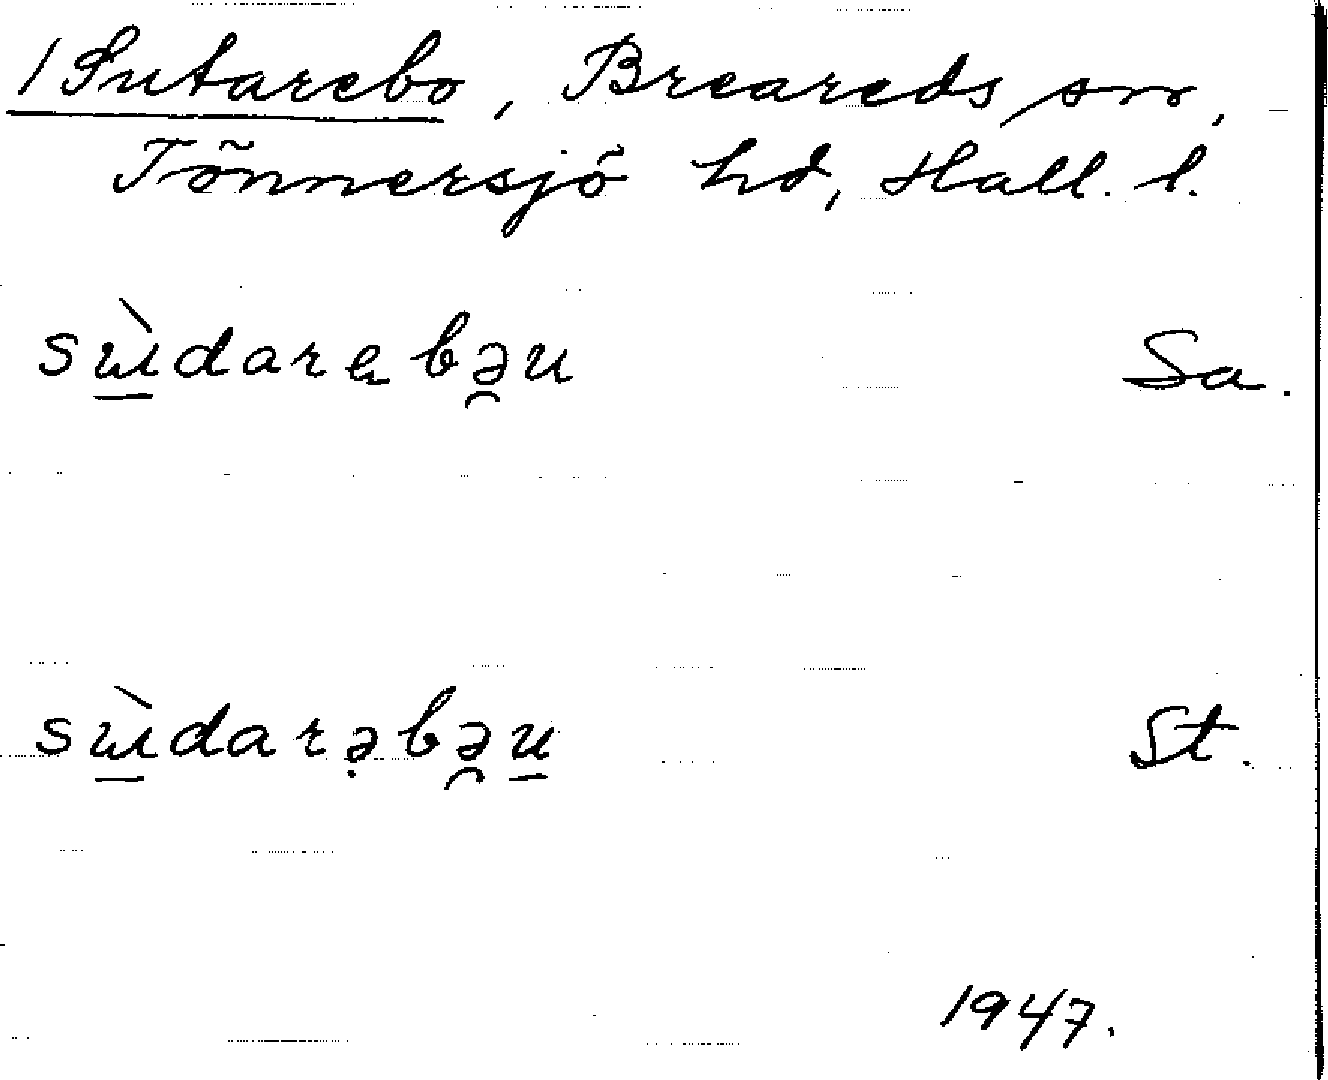 / Sutarebo, Breareds sn,
Tönnersjö hd, Hall. l.
sɯ̱̀darębə̯u Sa.
sɯ̱̀darə̣bə̯u̱ St.
1947.